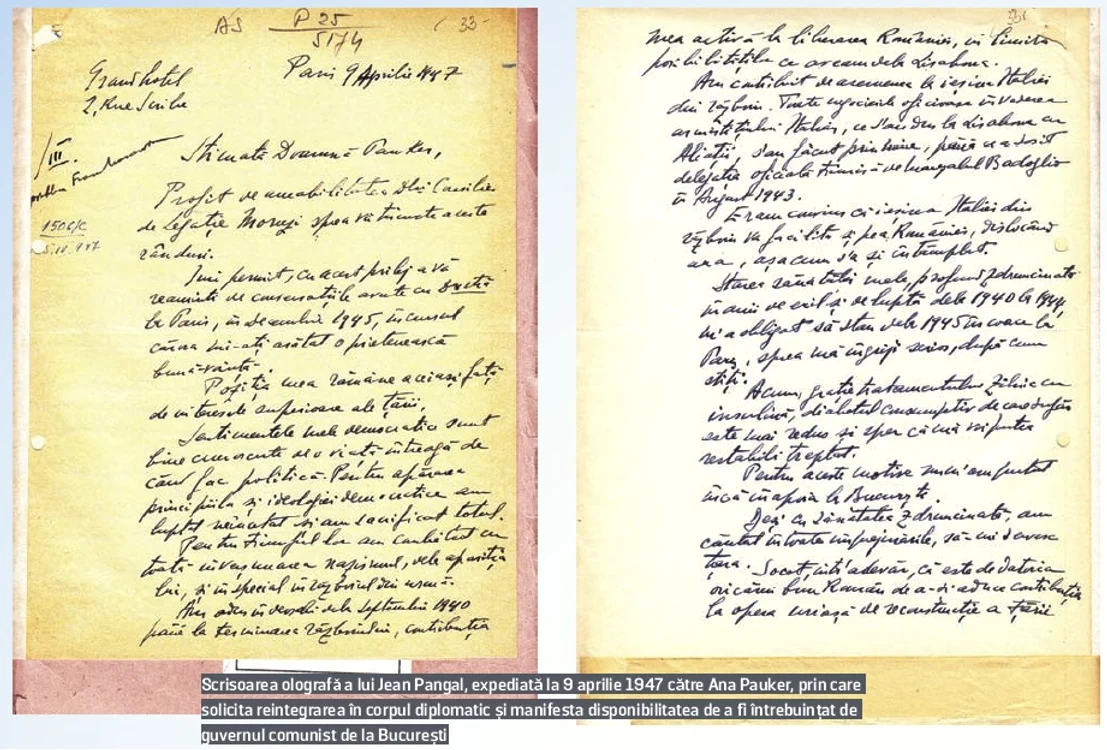 AS P 25 / 5174 33
Grand hotel
2, Rue Scribe
Paris 9 Aprilie 1947
III.
150 G/C
5.IV.947
Stimată Doamnă Pauker,
Profit de amabilitatea Dlui Consilier
de Legație Moruzi spre a vă trimite aceste
rânduri.
Îmi permit, cu acest prilej a vă
reaminti de conversațiile avute cu Dvs
la Paris, în Decembrie 1945, în cursul
cărora mi-ați arătat o prietenească
bunăvoință.
Poziția mea rămâne aceiași față
de interesele superioare ale țării.
Sentimentele mele democratice sunt
bine cunoscute de o viață întreagă de
când fac politică. Pentru apărarea
principiilor și ideologiei democratice am
luptat neîncetat și am sacrificat totul.
Pentru triumful lor am combătut cu
toată înverșunarea nazismul, dela apariția
lui, și în special în războiul din urmă.
Am adus în dela Septembrie 1940
până la terminarea războiului, contribuția
33
mea activă la liberarea României, în limita
posibilităților ce aveam dela Lisabona.
Am contribuit deasemenea la ieșirea Italiei
din război. Toate negocierile oficioase în vederea
armistițiului Italiei, ce s'au dus la Lisabona cu
Aliații, s'au făcut prin mine, până ce a sosit
delegația oficială trimisă de mareșalul Badoglio
în August 1943.
Eram convins că ieșirea Italiei din
război va facilita și pe a României, dislocând
axa, așa cum s'a și întâmplat.
Starea sănătății mele, profund zdruncinată
în anii de exil și de luptă dela 1940 la 1944,
m'a obligat să stau dela 1945 încoace la
Paris, spre a mă îngriji serios, după cum
știți.
Acum, grație tratamentului zilnic cu
insulină, diabetul consumptiv de care sufăr
este mai redus și sper că mă voi putea
restabili treptat.
Pentru aceste motive nu m'am putut
încă înapoia la București.
Deși cu sănătatea zdruncinată, am
căutat în toate împrejurările, să-mi servesc
țara. Socot, într'adevăr, că este de datoria
oricărui bun Român de a-și aduce contribuția
la opera uriașă de reconstrucție a Țării
Scrisoarea olografă a lui Jean Pangal, expediată la 9 aprilie 1947 către Ana Pauker, prin care
solicita reintegrarea în corpul diplomatic și manifesta disponibilitatea de a fi întrebuințat de
guvernul comunist de la București